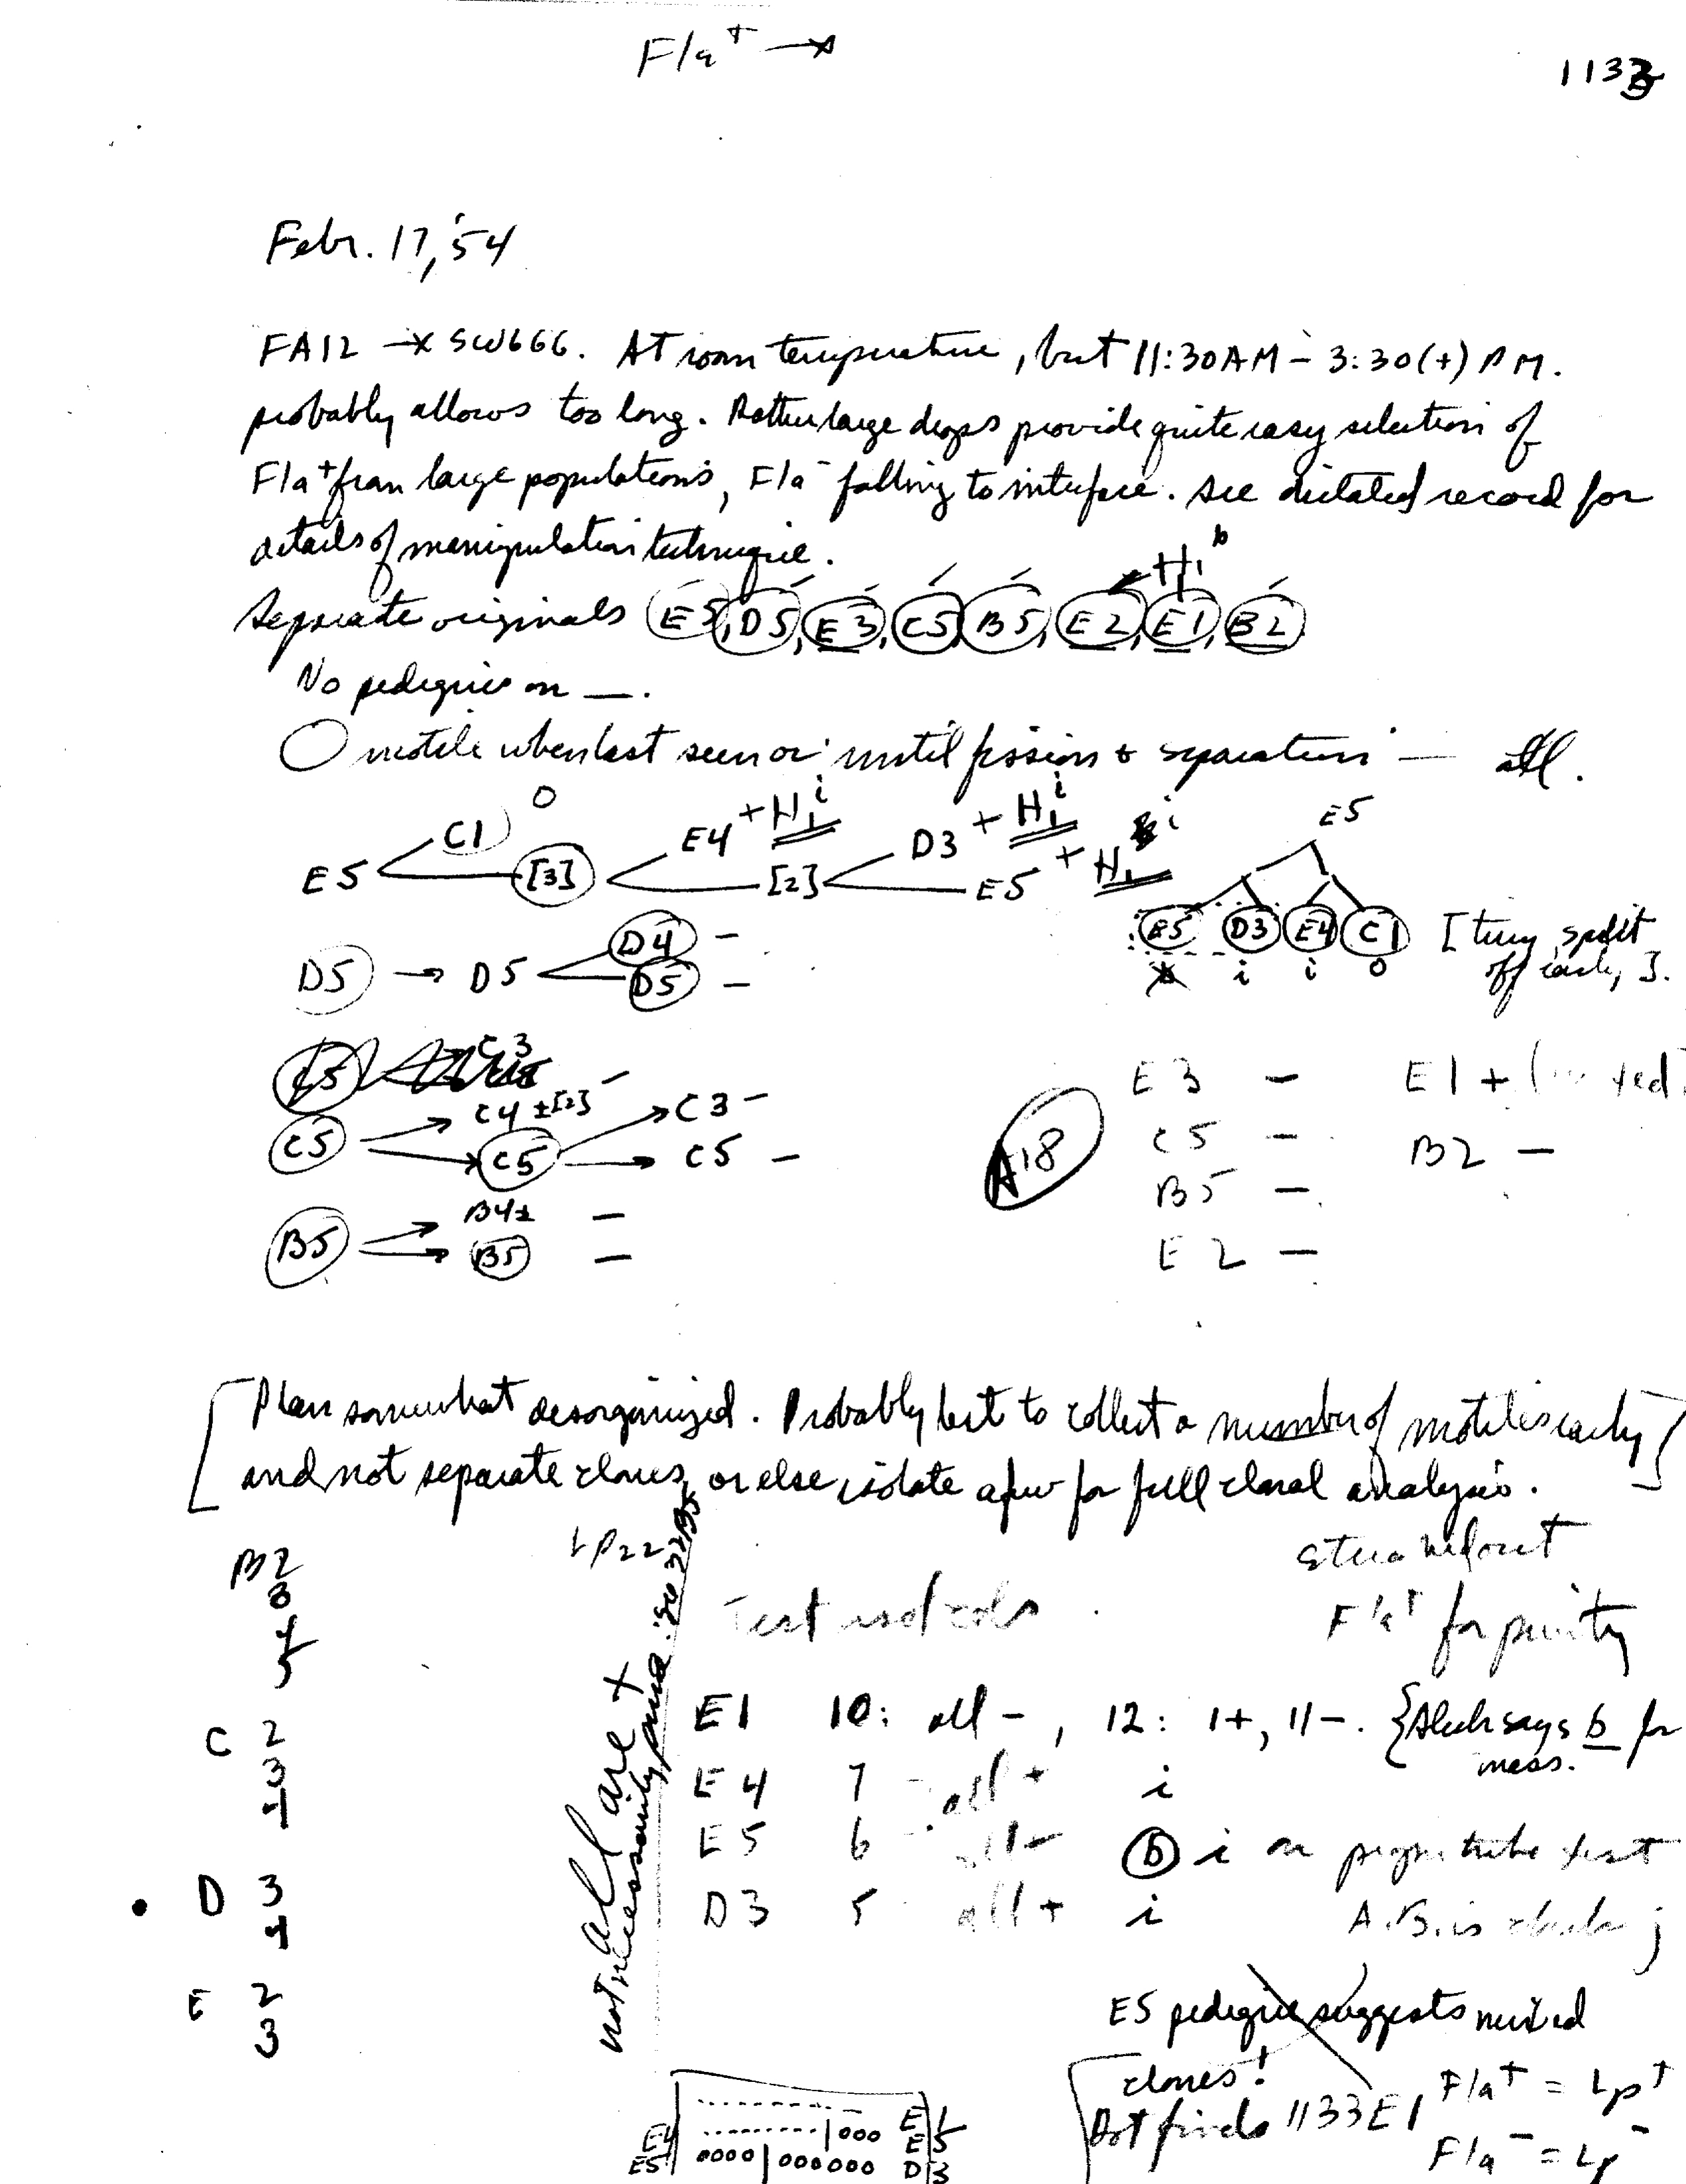 Fla+ —x
1133
Febr. 17, '54
FA12 —x SW666. At room temperature, but 11:30AM – 3:30(+) PM.
probably allows too long. Rather large drops provide quite easy selection of
Fla+ from large populations, Fla- falling to interface. See dictated record for
details of manipulation technique.
+H1 b
Separate originals E5, D5, E3, C5, B5, E2, E1, B2
No pedigrees on —.
O motile when last seen or until fission & separation — all.
E5 C1 0 [3] E4 + H1 i [2] D3 + H1 i E5 + H1 i
E5
E5 D3 E4 C1 [ split
i i 0 off early ].
D5 → D5 D4 –
D5 –
C3
C5 → C4 ±[2] –
C5 → C3 –
→ C5 –
B5 → B4± –
→ B5 –
A18
E3 – E1 +
C5 – B2 –
B5 –
E2 –
[Plan somewhat desorganized. Probably best to collect a number of motiles early
and not separate clones, or else isolate a few for full clonal analysis.]
B 2
3
4
5
C 2
3
4
D 3
4
E 2
3
LP22
all are +
not necessarily
Test
Streaked out
Fla+ for purity
E1 10: all – , 12: 1+, 11–. { says b for
mass.
E4 7 – all + i
E5 6 – all – b i on tube test
D3 5 all + i
A.B. is
E5 pedigree suggests mixed
clones!
finds 1133E1 Fla+ = Lp+
Fla- = Lp-
E1
E4 000 E5
E5 0000 | 000000 D3